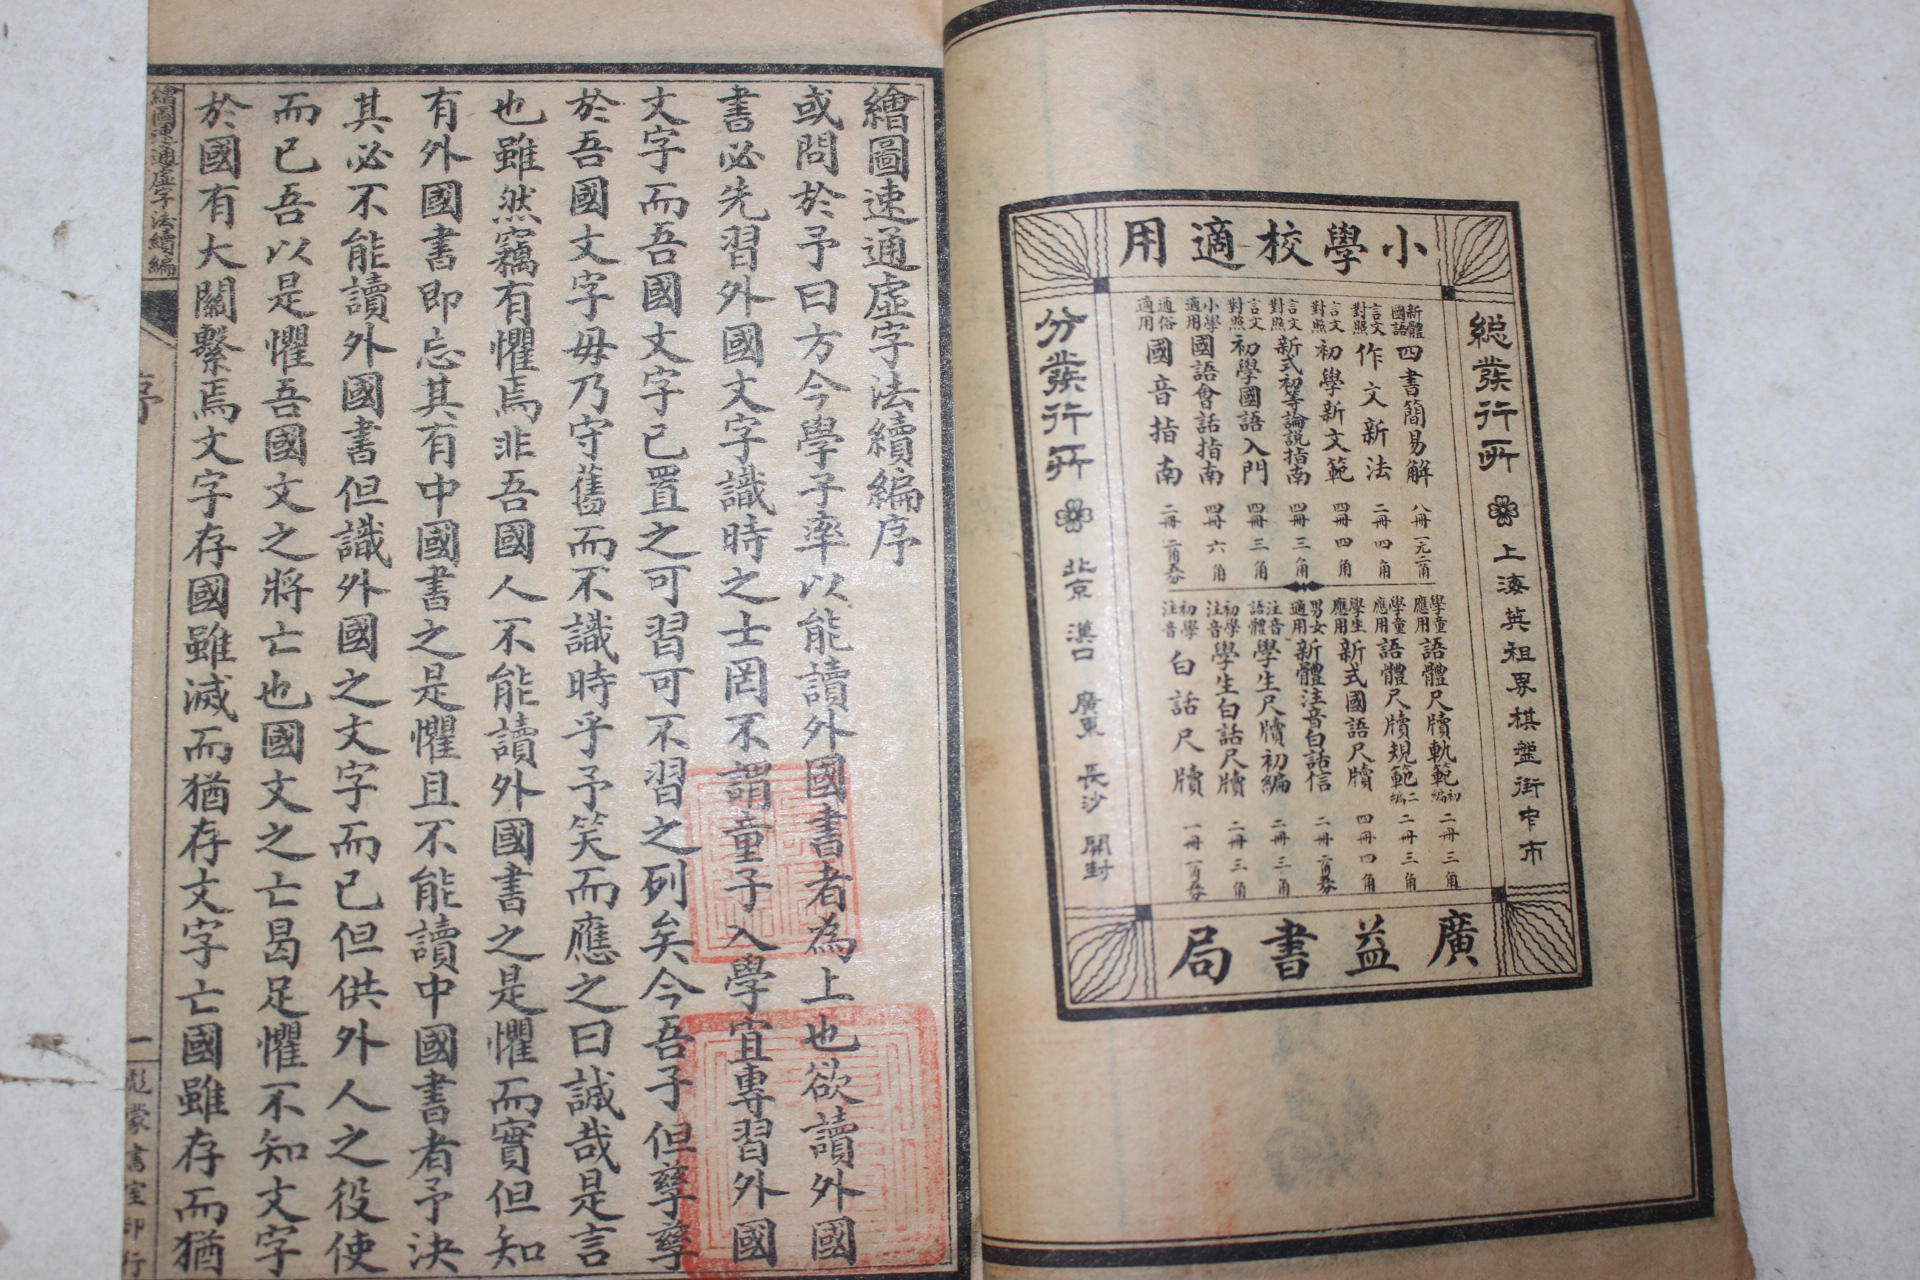 小學校適用
總發行所 上海英租界棋盤街中市
新體國語 四書簡易解 八冊 一元二角
言文對照 作文新法 二冊 四角
言文對照 初學新文範 四冊 四角
言文對照 新式初等論說指南 四冊 三角
言文對照 初學國語入門 四冊 三角
小學適用 國語會話指南 四冊 六角
通俗適用 國音指南 二冊 二角五分
學童應用 語體尺牘軌範 初編 二冊 三角
學童應用 語體尺牘規範 二編 二冊 三角
學生應用 新式國語尺牘 四冊 四角
男女適用 新體注音白話信 二冊
注音語體 學生尺牘初編 二冊 三角
初學注音 學生白話尺牘 二冊 三角
初學注音 白話尺牘 一冊
分發行所 北京 漢口 廣東 長沙 開封
廣益書局
繪圖速通虛字法續編序
或問於予曰方今學子率以能讀外國書者為上也欲讀外國
書必先習外國文字識時之士罔不謂童子入學宜專習外國
文字而吾國文字已置之可習可不習之列矣今吾子但孳孳
於吾國文字毋乃守舊而不識時乎予笑而應之曰誠哉是言
也雖然竊有懼焉非吾國人不能讀外國書之是懼而實但知
有外國書即忘其有中國書之是懼且不能讀中國書者予決
其必不能讀外國書但識外國之文字而已但供外人之役使
而已吾以是懼吾國文之將亡也國文之亡曷足懼不知文字
於國有大關繫焉文字存國雖滅而猶存文字亡國雖存而猶
繪圖速通虛字法續編
序
一
彪蒙書室印行